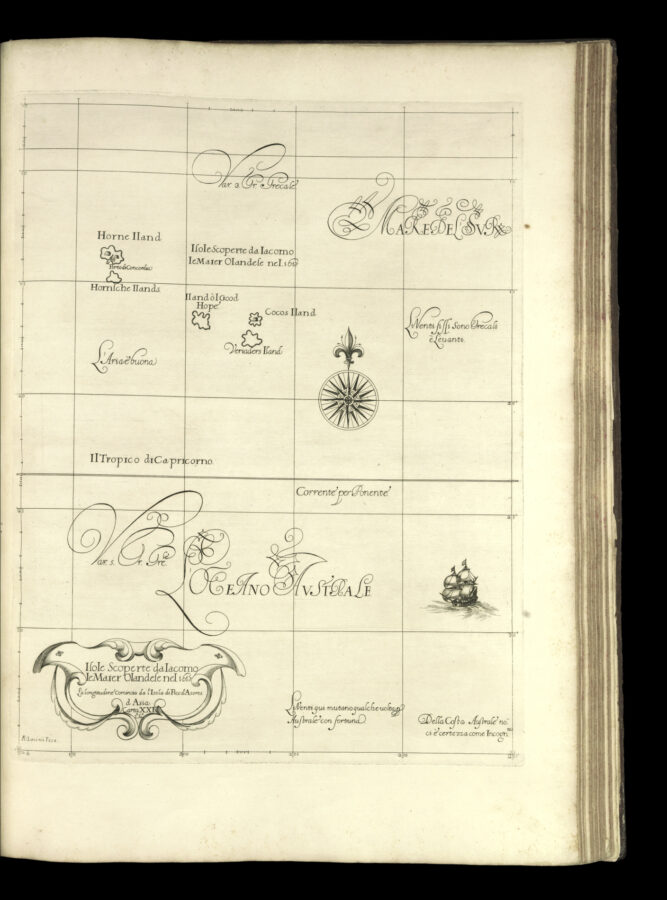 Var. 2. Gr. Grecale
MARE DEL SVR
Horne Iland
Isole Scoperte da Iacomo
le Maier Olandese nel. 161
Porto di Concordia
Hornsche Ilands
Iland ò I Good
Hope
Cocos Iland
Veruaders Iland
L'Aria è buona
Li Venti fissi Sono Grecali
e Levanti.
Il Tropico di Capricorno
Corrente per Ponente
Var. 5. Gr. Gre.
L'OCEANO AVSTRALE
Isole Scoperte da Iacomo
le Maier Olandese nel 161
La longitudine Comincia da l'Isola di Pico d'Asores
d'Asia
Carta XXII
Li Venti qui mutano qualche volta p
Australe con fortuna
Della Costa Australe no
ci è certezza come Incogn